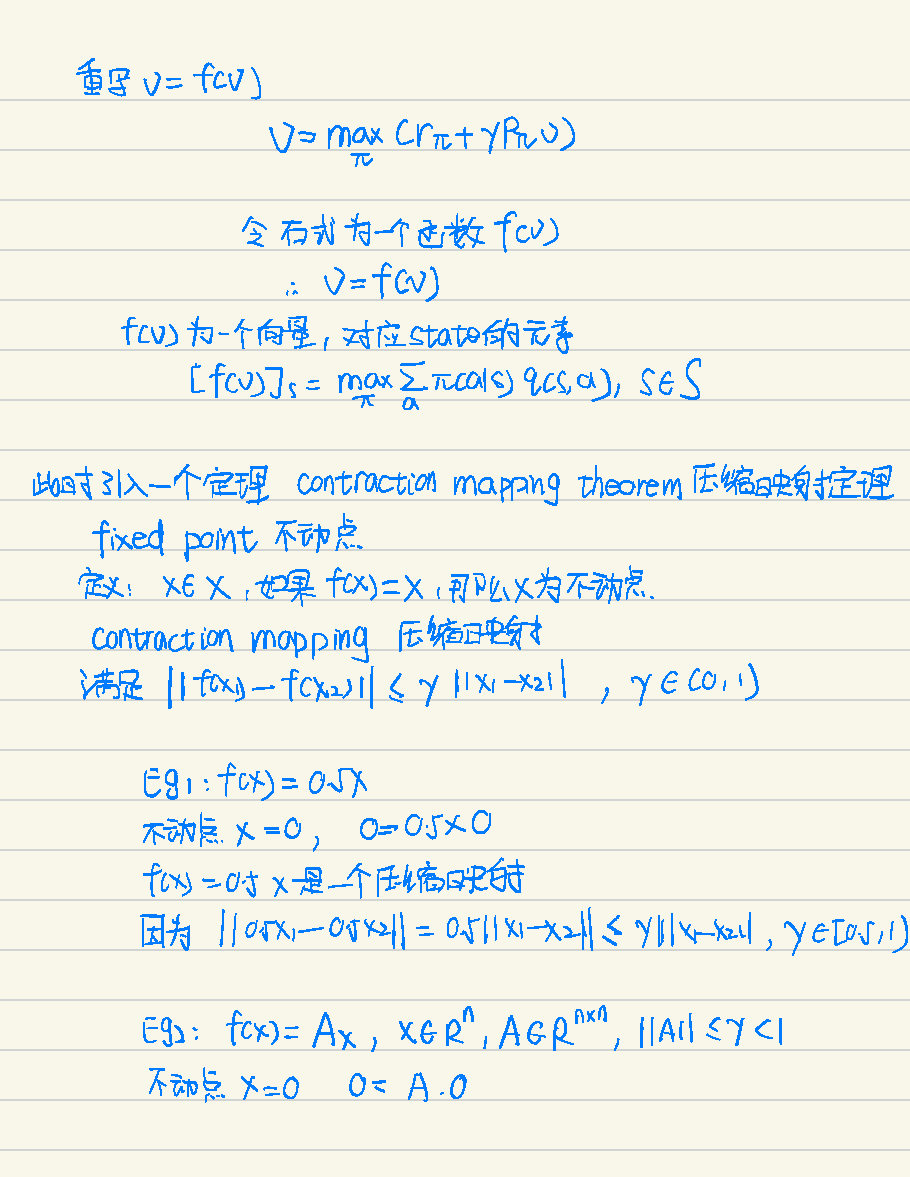 重写 v = f(v)
v = max_π (r_π + γP_π v)
令右式为一个函数 f(v)
∴ v = f(v)
f(v) 为一个向量, 对应state的元素
[f(v)]_s = max_π ∑_a π(a|s) q(s,a), s∈S
此时引入一个定理 contraction mapping theorem 压缩映射定理
fixed point 不动点
定义: x∈X, 如果 f(x)=x, 那么x为不动点.
contraction mapping 压缩映射
满足 ||f(x₁)-f(x₂)|| ≤ γ ||x₁-x₂|| , γ∈(0,1)
Eg1: f(x) = 0.5x
不动点 x=0, 0=0.5×0
f(x)=0.5x是一个压缩映射
因为 ||0.5x₁-0.5x₂|| = 0.5||x₁-x₂|| ≤ γ||x₁-x₂||, γ∈[0.5,1)
Eg2: f(x)=Ax, x∈Rⁿ, A∈Rⁿˣⁿ, ||A|| ≤γ<1
不动点 x=0 0= A·0